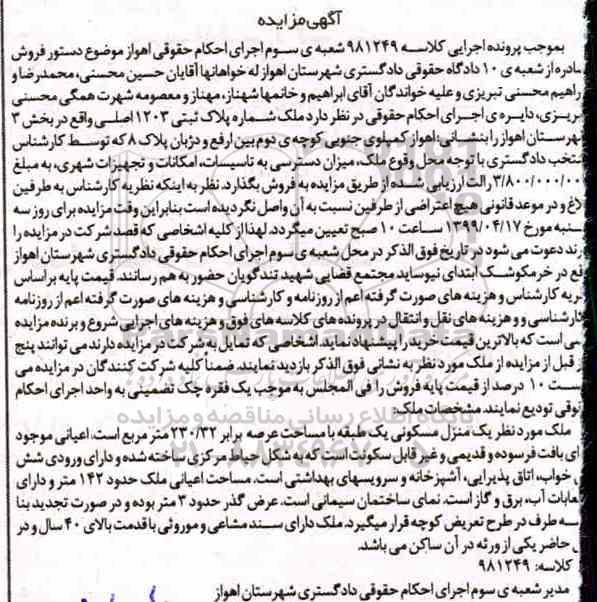 آگهی مزایده
بموجب پرونده اجرایی کلاسه ۹۸۱۲۴۹ شعبه ی سوم اجرای احکام حقوقی اهواز موضوع دستور فروش
صادره از شعبه ی ۱۰ دادگاه حقوقی دادگستری شهرستان اهواز له خواهانها آقایان حسین محسنی، محمدرضا و
راهیم محسنی تبریزی و علیه خواندگان آقای ابراهیم و خانمها شهناز، مهناز و معصومه شهرت همگی محسنی
بریزی، دایره ی اجرای احکام حقوقی در نظر دارد ملک شماره پلاک ثبتی ۱۲۰۳ اصلی واقع در بخش ۳
هرستان اهواز را بنشانی: اهواز کمپلوی جنوبی کوچه ی دوم بین ارفع و دژبان پلاک ۸ که توسط کارشناس
نتخب دادگستری با توجه محل وقوع ملک، میزان دسترسی به تاسیسات، امکانات و تجهیزات شهری، به مبلغ
۳/۸۰۰/۰۰۰/۰۰ رالت ارزیابی شده از طریق مزایده به فروش بگذارد. نظر به اینکه نظریه کارشناس به طرفین
لاغ و در موعد قانونی هیچ اعتراضی از طرفین نسبت به آن واصل نگردیده است بنابراین وقت مزایده برای روز سه
سنبه مورخ ۱۳۹۹/۰۴/۱۷ ساعت ۱۰ صبح تعیین میگردد. لهذا از کلیه اشخاصی که قصد شرکت در مزایده را
رند دعوت می شود در تاریخ فوق الذکر در محل شعبه ی سوم اجرای احکام حقوقی دادگستری شهرستان اهواز
قع در خرمکوشک ابتدای نیوساید مجتمع قضایی شهید تندگویان حضور به هم رسانند. قیمت پایه بر اساس
ریه کارشناس و هزینه های صورت گرفته اعم از روزنامه و کارشناسی و هزینه های صورت گرفته اعم از روزنامه
کارشناسی و و هزینه های نقل و انتقال در پرونده های کلاسه های فوق و هزینه های اجرایی شروع و برنده مزایده
سی است که بالاترین قیمت خرید را پیشنهاد نماید. اشخاصی که تمایل به شرکت در مزایده دارند می توانند پنج
ز قبل از مزایده از ملک مورد نظر به نشانی فوق الذکر بازدید نمایند. ضمناً کلیه شرکت کنندگان در مزایده می
یست ۱۰ درصد از قیمت پایه فروش را فی المجلس به موجب یک فقره چک تضمینی به واحد اجرای احکام
قوقی تودیع نمایند. مشخصات ملک:
ملک مورد نظر یک منزل مسکونی یک طبقه با مساحت عرصه برابر ۲۳۰/۳۲ متر مربع است. اعیانی موجود
ای بافت فرسوده و قدیمی و غیر قابل سکونت است که به شکل حیاط مرکزی ساخته شده و دارای ورودی شش
خواب، اتاق پذیرایی، آشپزخانه و سرویسهای بهداشتی است. مساحت اعیانی ملک حدود ۱۴۲ متر و دارای
عابات آب، برق و گاز است. نمای ساختمان سیمانی است. عرض گذر حدود ۳ متر بوده و در صورت تجدید بنا
سه طرف در طرح تعریض کوچه قرار میگیرد. ملک دارای سند مشاعی و موروثی با قدمت بالای ۴۰ سال و در
حاضر یکی از ورثه در آن ساکن می باشد.
کلاسه: ۹۸۱۲۴۹
مدیر شعبه ی سوم اجرای احکام حقوقی دادگستری شهرستان اهواز